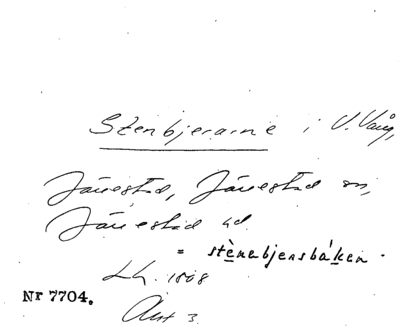 Stenbjerarne i V. Vång,
Järrestad, Järrestad sn,
Järrestad hd.
= stènebjensbáken.
Lh. 1808
Nr 7704.
Akt 3.